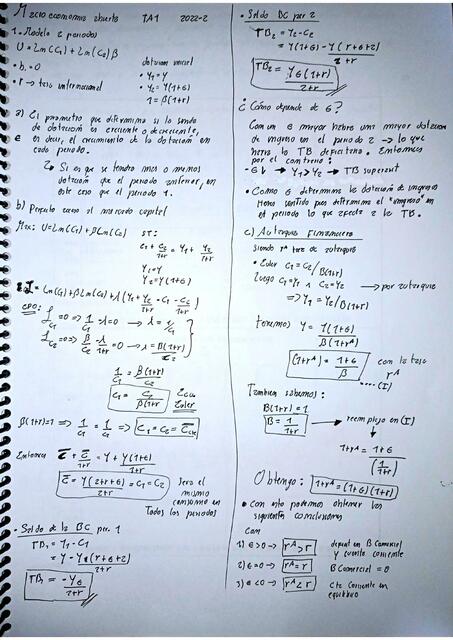 Macro economia abierta TA1 2022-2
1.- Modelo 2 periodos
U = Ln(C₁) + Ln(C₂)β
• b₀ = 0
• r → tasa internacional
dotacion inicial
• Y₁ = Y
• Y₂ = Y(1+ϵ)
1 = β(1+r)
a) El parametro que determina si la senda
de dotación es creciente o decreciente,
es decir, el crecimiento de la dotación en
cada periodo.
↳ Si es que se tendra mas o menos
dotación que el periodo anterior, en
este caso que el periodo 1.
b) Perfecto acceso al mercado capital
Max: U = Ln(C₁) + βLn(C₂) st:
C₁ + C₂/1+r = Y₁ + Y₂/1+r
Y₁ = Y
Y₂ = Y(1+ϵ)
ℒ = Ln(C₁) + βLn(C₂) + λ(Y₁ + Y₂/1+r - C₁ - C₂/1+r)
CPO:
ℒc₁ = 0 => 1/C₁ - λ = 0 -> λ = 1/C₁
ℒc₂ = 0 => β/C₂ - λ/1+r = 0 -> λ = β(1+r)/C₂
1/C₁ = β(1+r)/C₂
C₁ = C₂/β(1+r) Ecu. Euler
β(1+r) = 1 => 1/C₁ = 1/C₂ => C₁ = C₂ = C̄
Entonces C̄ + C̄/1+r = Y + Y(1+ϵ)/1+r
C̄ = Y(2+r+ϵ)/2+r = C₁ = C₂
Sera el
mismo
consumo en
Todos los periodos
- Saldo de la BC per. 1
TB₁ = Y₁ - C₁
= Y - Y(r+ϵ+2)/2+r
TB₁ = -Yϵ/2+r
• Saldo BC per 2
TB₂ = Y₂ - C₂
= Y(1+ϵ) - Y(r+ϵ+2)/2+r
TB₂ = Yϵ(1+r)/2+r
¿Cómo depende de ϵ?
Con un ϵ mayor habra una mayor dotacion
de ingreso en el periodo 2 → lo que
haria la TB deficitaria. Entonces
por el contrario:
- ϵ↓ → Y₁ > Y₂ → TB superavit
• Como ϵ determina la dotación de ingresos
tiene sentido pues determina el "ingreso" en
el periodo lo que afecta a la TB.
c) Autarquia Financiera
siendo rᴬ tasa de autarquia
• Euler C₁ = C₂/β(1+r)
luego C₁ = Y₁ ∧ C₂ = Y₂ → por autarquia
=> Y₁ = Y₂/β(1+r)
tenemos Y = Y(1+ϵ)/β(1+rᴬ)
(1+rᴬ) = 1+ϵ/β con la tasa rᴬ
...(I)
Tambien sabemos:
β(1+r) = 1
β = 1/1+r → reemplazo en (I)
1+rᴬ = 1+ϵ/(1/1+r)
Obtengo: 1+rᴬ = (1+ϵ)(1+r)
• con esto podemos obtener las
siguientes conclusiones
Con
1) ϵ>0 → rᴬ > r deficit en B Comercial
y cuenta corriente
2) ϵ=0 → rᴬ = r B Comercial = 0
3) ϵ<0 → rᴬ < r Cta Corriente en
equilibrio